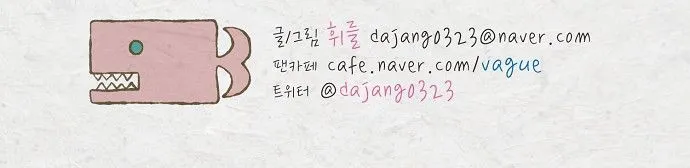 글/그림 휘들 dajang0323@naver.com
팬카페 cafe.naver.com/vague
트위터 @dajang0323